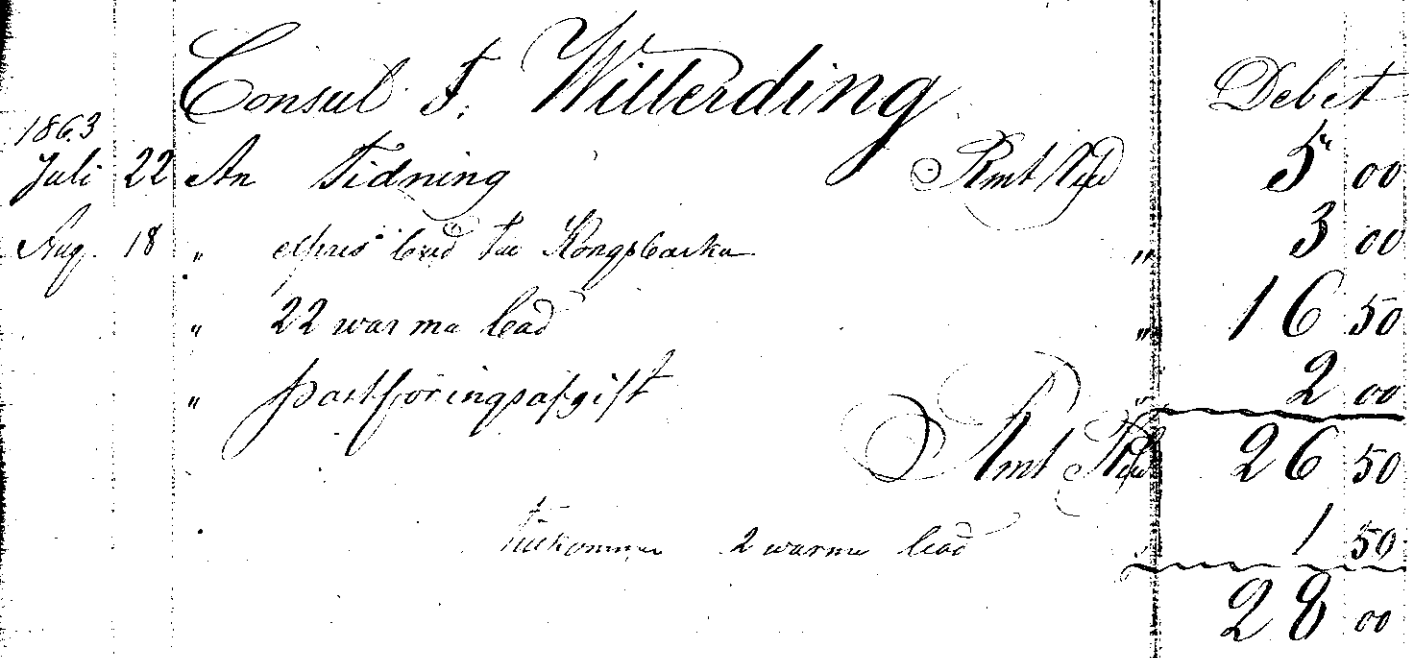 Consul F. Witterding Debet
1863
Juli 22 An Tidning Rmt Rd 5 00
Aug. 18 " expres bud till Kongsbacka " 3 00
" 22 warma bad " 16 50
" postföringsafgift " 2 00
Rmt 26 50
tillkommer 2 warma bad " 1 50
28 00